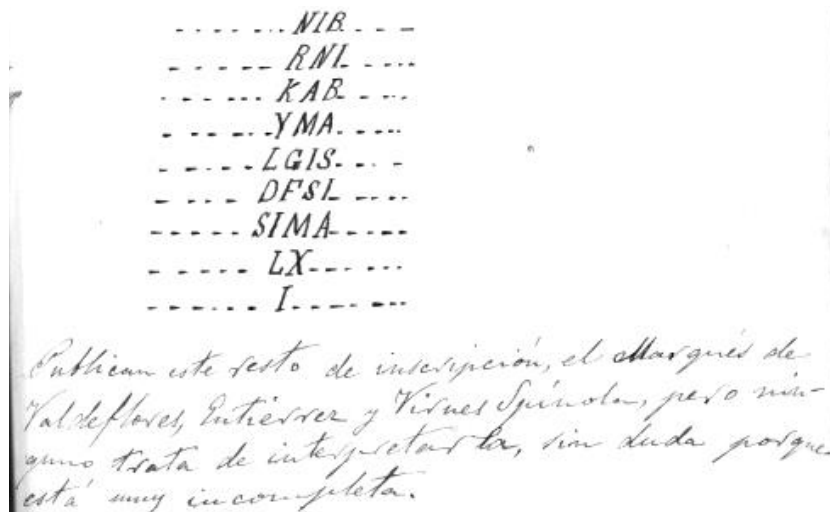 - - - - - - - NIB - - - -
- - - - - - RNI - - - - -
- - - - - - KAB - - - - -
- - - - - - YMA - - - - -
- - - - - LGIS - - - -
- - - - - DFSI - - - - -
- - - - - SIMA - - - - -
- - - - - LX - - - - - -
- - - - - - I - - - - - - -
Publican este resto de inscripción, el Marqués de
Valdeflores, Gutiérrez y Virues Spínola, pero nin-
guno trata de interpretarla, sin duda porque
está muy incompleta.